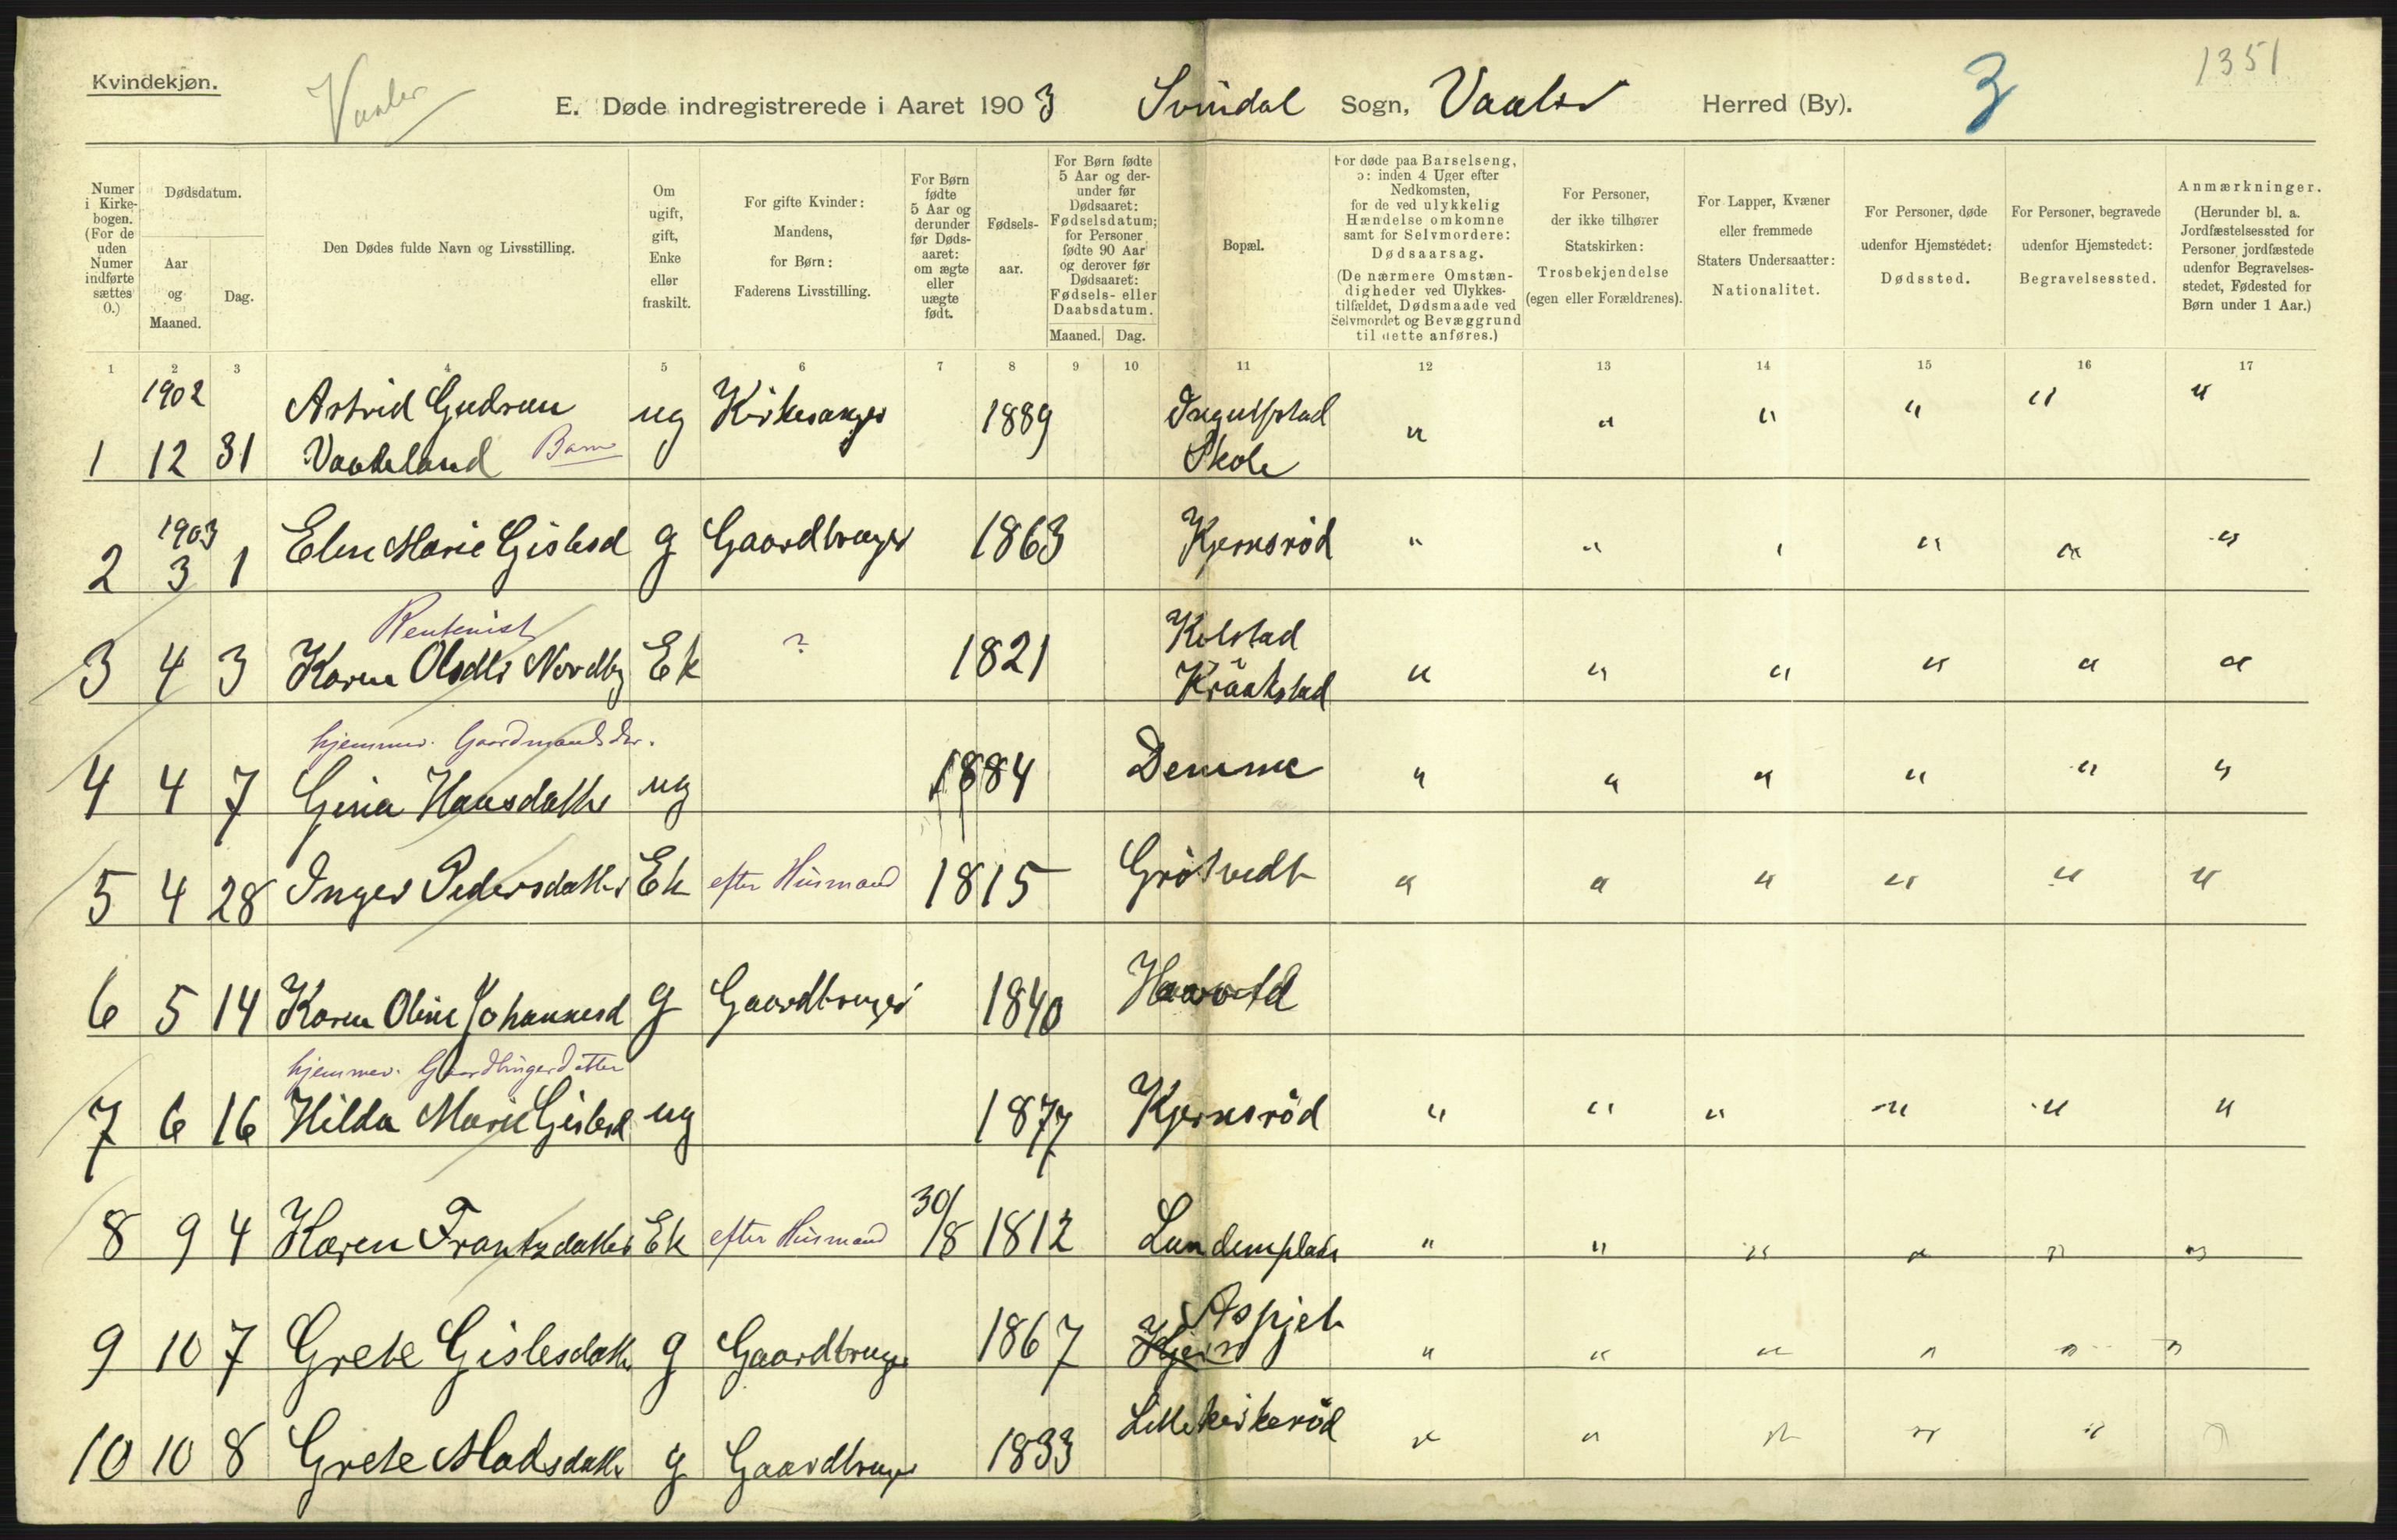 Kvindekjøn.
Vaaler
E. Døde indregistrerede i Aaret 1903 Svindal Sogn, Vaaler Herred (By).
3
1351
Numer i Kirke-bogen. (For de uden Numer indførte sættes 0.)
Dødsdatum.
Aar og Maaned.
Dag.
Den Dødes fulde Navn og Livsstilling.
Om ugift, gift, Enke eller fraskilt.
For gifte Kvinder: Mandens, for Børn: Faderens Livsstilling.
For Børn fødte 5 Aar og derunder før Døds-aaret: om ægte eller uægte født.
Fødsels-aar.
For Børn fødte 5 Aar og der-under før Dødsaaret: Fødselsdatum; for Personer fødte 90 Aar og derover før Dødsaaret: Fødsels- eller Daabsdatum.
Maaned. Dag.
Bopæl.
For døde paa Barselseng, ɔ: inden 4 Uger efter Nedkomsten, for de ved ulykkelig Hændelse omkomne samt for Selvmordere: Dødsaarsag. (De nærmere Omstæn-digheder ved Ulykkes-tilfældet, Dødsmaade ved Selvmordet og Bevæggrund til dette anføres.)
For Personer, der ikke tilhører Statskirken: Trosbekjendelse (egen eller Forældrenes).
For Lapper, Kvæner eller fremmede Staters Undersaatter: Nationalitet.
For Personer, døde udenfor Hjemstedet: Dødssted.
For Personer, begravede udenfor Hjemstedet: Begravelsessted.
Anmærkninger. (Herunder bl. a. Jordfæstelsessted for Personer jordfæstede udenfor Begravelses-stedet, Fødested for Børn under 1 Aar.)
1 2 3 4 5 6 7 8 9 10 11 12 13 14 15 16 17
1902 Astrid Gudrun ug Kirkesanger 1889 Ingulfstad " " " " " "
1 12 31 Vaateland Barn Skole
1903
2 3 1 Elen Marie Gislesd g Gaardbruger 1863 Kjernsröd " " " " " "
Rentenist Kolstad
3 4 3 Karen Olsdtr Nordby Ek ? 1821 Kråakstad " " " " " "
hjemmev. Gaardmandsdtr.
4 4 7 Gina Hansdatter ug 1884 Demme " " " " " "
5 4 28 Inger Pedersdatter Ek efter Husmand 1815 Grötvedt " " " " " "
6 5 14 Karen Oline Johannesd g Gaardbruger 1840
hjemmev. Gaardbrugerdatter
7 6 16 Hilda Marie Gislesd ug 1877 Kjernsröd " " " " " "
8 9 4 Karen Frantzdatter Ek efter Husmand 30/8 1812 Lundemplads " " " " " "
Aspjel
9 10 7 Grete Gislesdatter g Gaardbruger 1867 " " " " " "
10 10 8 Grete Madsdatter g Gaardbruger 1833 Lillekirkeröd " " " " " "